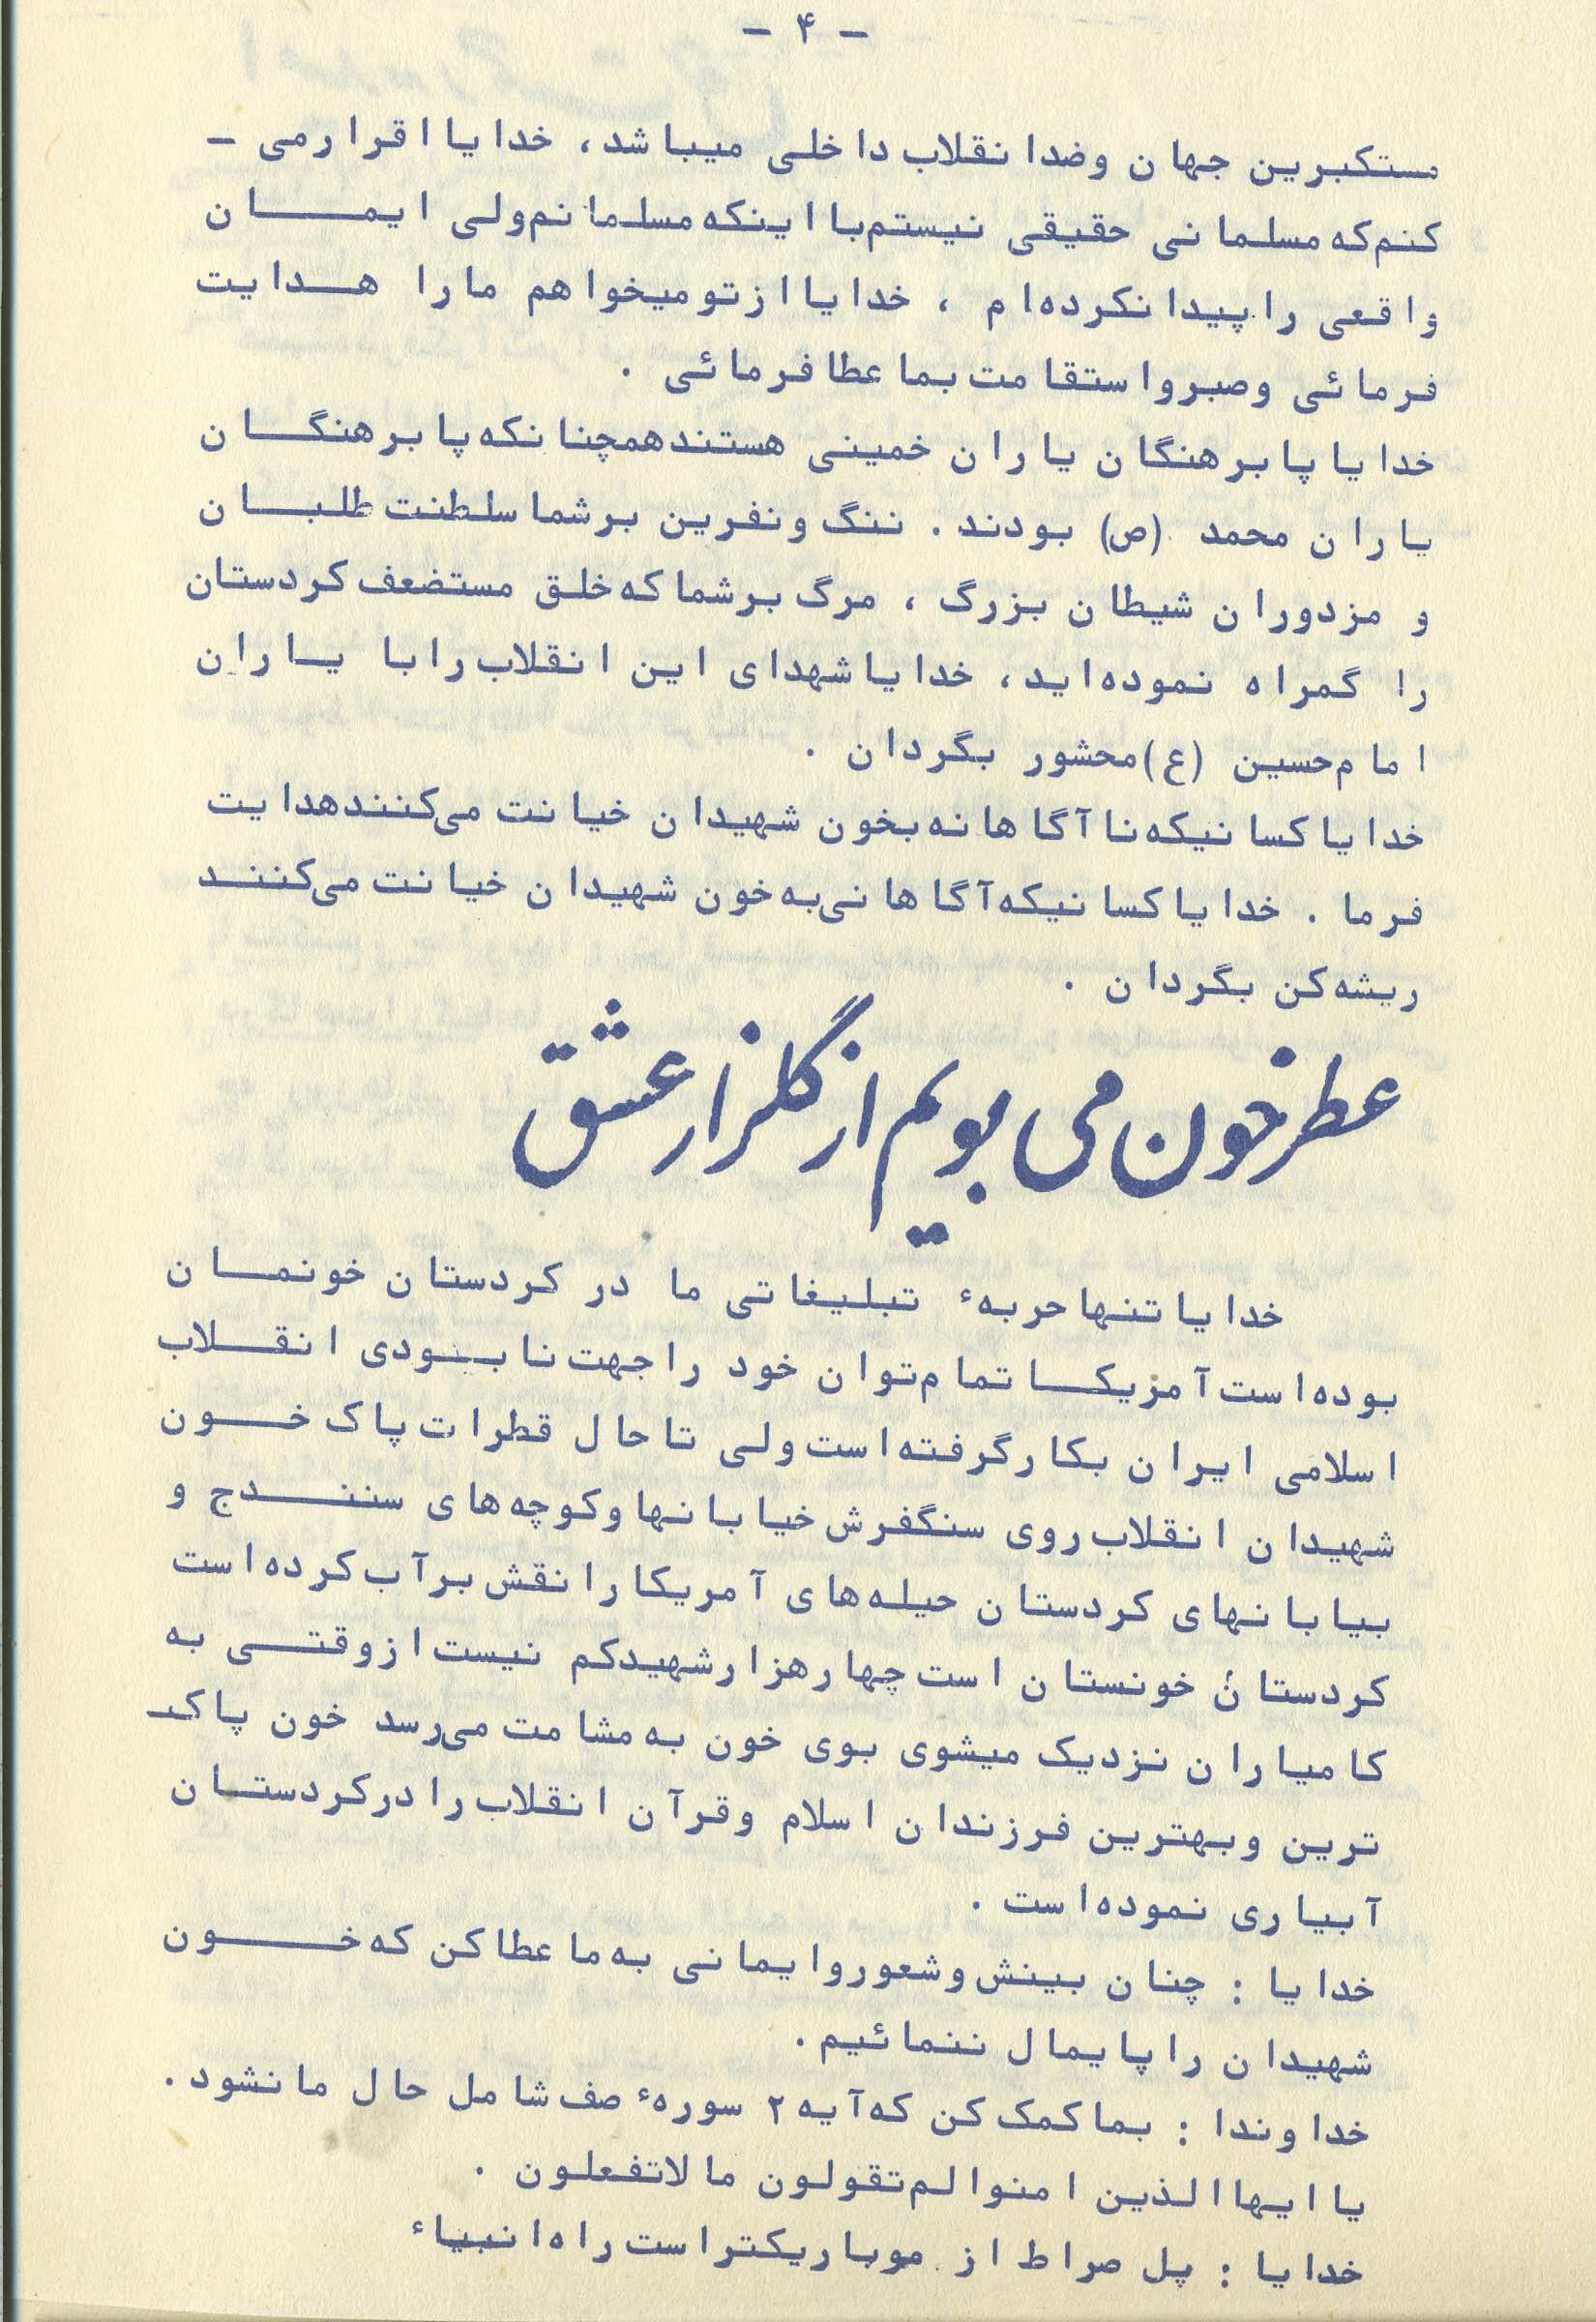 - ۴ -
مستکبرین جهان وضدانقلاب داخلی میباشد، خدایا اقرارمی -
کنم که مسلمانی حقیقی نیستم با اینکه مسلمانم ولی ایمان
واقعی را پیدا نکرده‌ام ، خدایا از تو میخواهم ما را هدایت
فرمائی وصبرواستقامت بما عطا فرمائی .
خدایا پابرهنگان یاران خمینی هستند همچنانکه پابرهنگان
یاران محمد (ص) بودند . ننگ ونفرین برشما سلطنت طلبان
و مزدوران شیطان بزرگ ، مرگ برشما که خلق مستضعف کردستان
را گمراه نموده‌اید، خدایا شهدای این انقلاب را با یاران
امام حسین (ع) محشور بگردان .
خدایا کسانیکه ناآگاهانه بخون شهیدان خیانت می‌کنند هدایت
فرما . خدایا کسانیکه آگاهانی به خون شهیدان خیانت می‌کنند
ریشه‌کن بگردان .
عطر خون می بویم از گلزار عشق
خدایا تنها حربهٔ تبلیغاتی ما در کردستان خونمان
بوده‌است آمریکا تمام توان خود را جهت نابودی انقلاب
اسلامی ایران بکارگرفته‌است ولی تا حال قطرات پاک خون
شهیدان انقلاب روی سنگفرش خیابانها وکوچه‌های سنندج و
بیابانهای کردستان حیله‌های آمریکا را نقش برآب کرده‌است
کردستان خونستان است چهارهزارشهیدکم نیست ازوقتی به
کامیاران نزدیک میشوی بوی خون به مشامت می‌رسد خون پاک
ترین وبهترین فرزندان اسلام وقرآن انقلاب را درکردستان
آبیاری نموده‌است .
خدایا : چنان بینش وشعوروایمانی به ما عطاکن که خون
شهیدان را پایمال ننمائیم.
خداوندا : بما کمک کن که آیه ۲ سورهٔ صف شامل حال ما نشود .
یا ایها الذین امنوا لم تقولون مالاتفعلون .
خدایا : پل صراط از موباریکتراست راه انبیاء